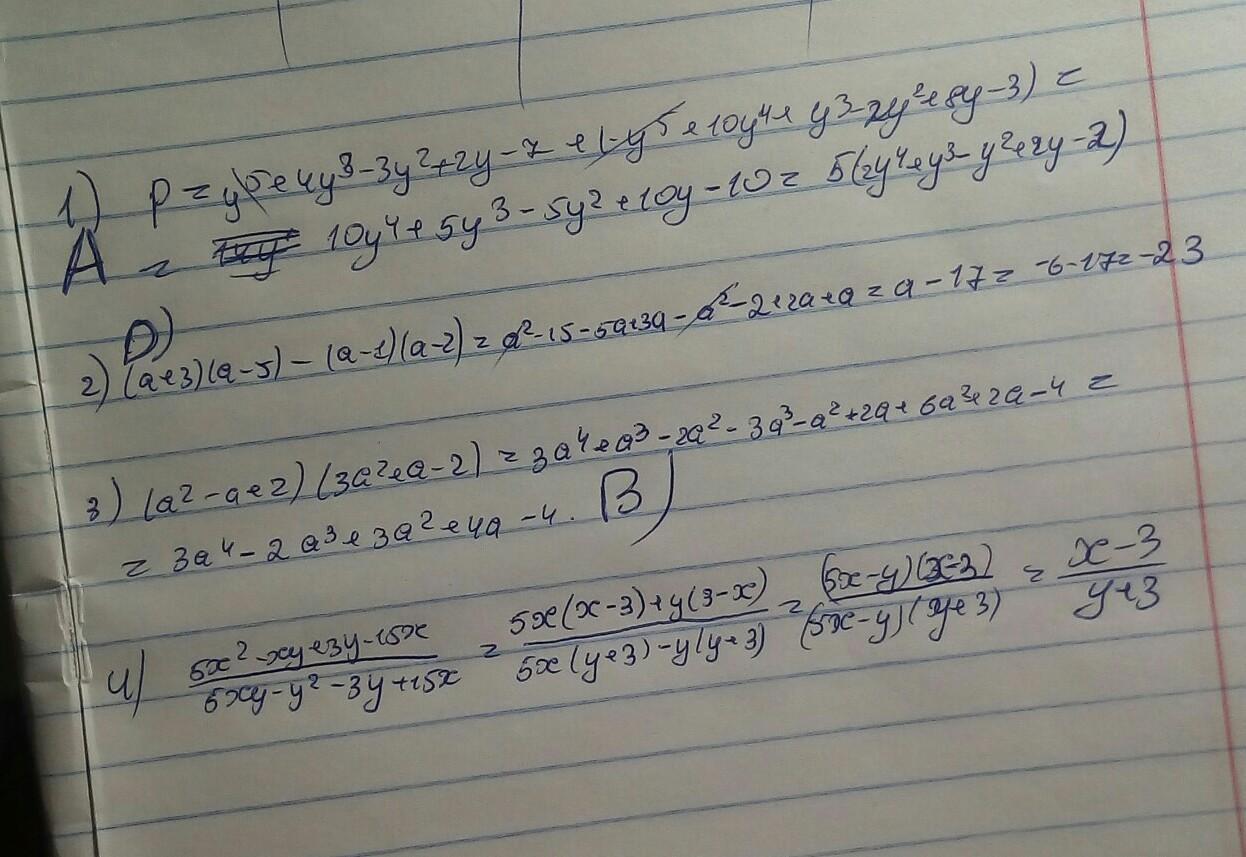 1) P = y⁵+4y³-3y²+2y-7+(-y⁵+10y⁴+y³-2y²+8y-3) =
A = 10y⁴+5y³-5y²+10y-10 = 5(2y⁴+y³-y²+2y-2)
D)
2) (a+3)(a-5)-(a-1)(a-2) = a²-15-5a+3a-a²-2+2a+a = a-17 = -6-17=-23
3) (a²-a+2)(3a²+a-2) = 3a⁴+a³-2a²-3a³-a²+2a+6a²+2a-4 =
= 3a⁴-2a³+3a²+4a-4. B)
4) (5x²-xy+3y-15x)/(5xy-y²-3y+15x) = (5x(x-3)+y(3-x))/(5x(y+3)-y(y+3)) = ((5x-y)(x-3))/((5x-y)(y+3)) = (x-3)/(y+3)